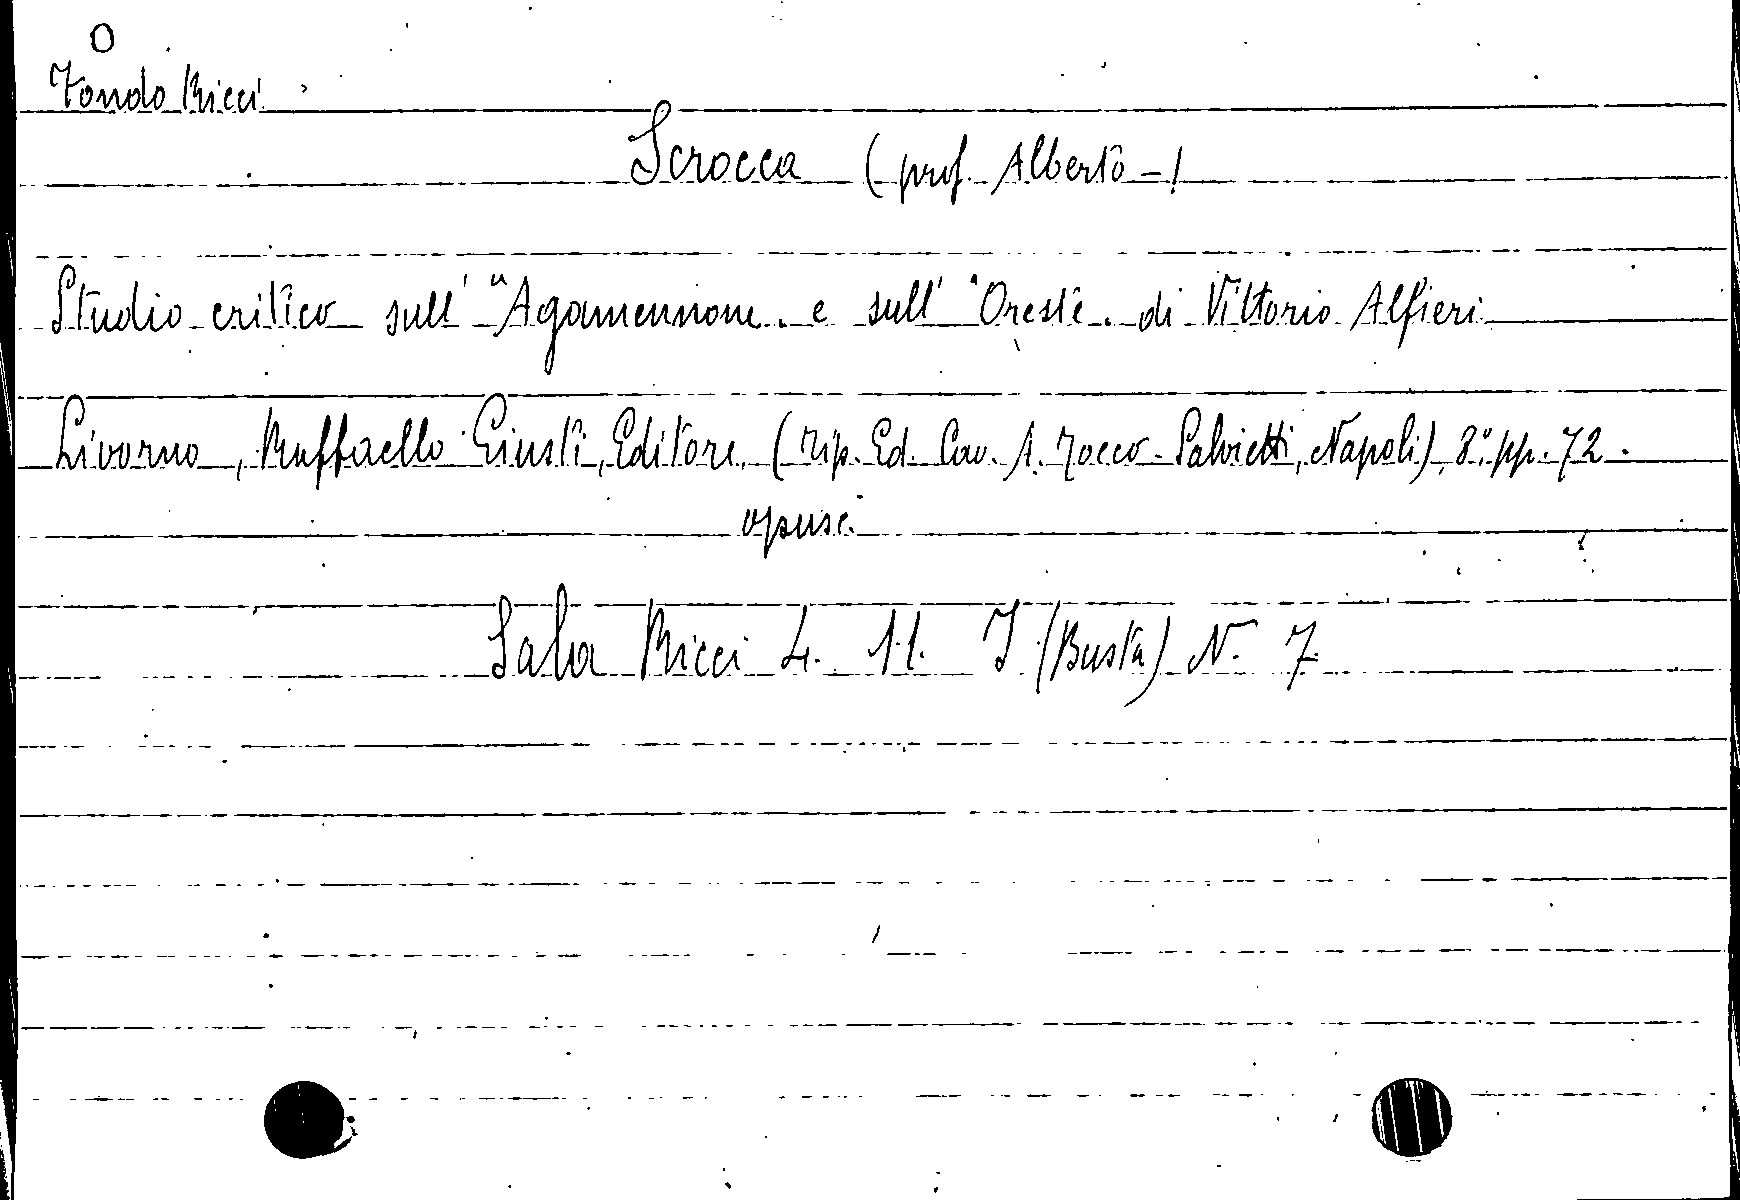 O
Fondo Ricci
Scrocca (prof. Alberto -)
Studio critico sull' "Agamennone" e sull' "Oreste" di Vittorio Alfieri
Livorno, Raffaello Giusti, Editore, (tip. Ed. Cav. A. Rocco - Salvietti, Napoli), 8°, pp. 72.
opusc.
Sala Ricci 4. 11. I (Busta) N. 7